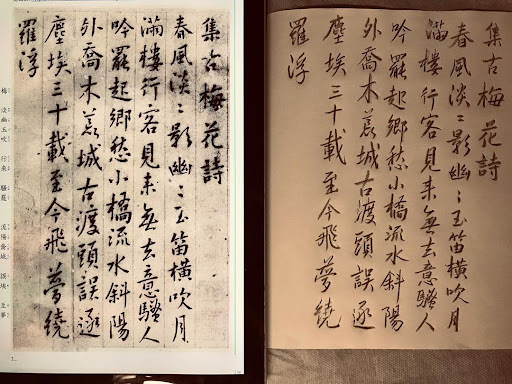 集古梅花詩
春風淡〻影幽〻玉笛橫吹月
滿樓行客見来無去意騷人
吟罷起鄉愁小橋流水斜陽
外喬木荒城古渡頭誤逐
塵埃三十載至今飛夢繞
羅浮
梅 淡幽玉吹 行来 騷罷 流陽喬城 誤埃 至夢
集古梅花詩
春風淡〻影幽〻玉笛橫吹月
滿樓行客見来無去意騷人
吟罷起鄉愁小橋流水斜陽
外喬木荒城古渡頭誤逐
塵埃三十載至今飛夢繞
羅浮